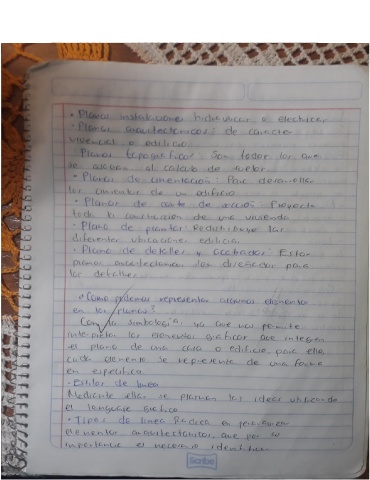 • Planos instalaciones hidraulicas o electricas
• Planos arquitectonicos: de caracter
vivencial o edificio
Planos topograficos: Son todos los que
se al calculo de suelos
• Planos de cimentación: Para desarrollar
los cimientos de un edificio
• Planos de corte de sección: Proyecta
toda la construcción de una vivienda
• Plano de plantas: Redistribuye las
diferentes ubicaciones edificio
• Plano de detalles y acabados: Estos
planos arquitectonicos son diseñados para
los detalles
• ¿Como podemos representar algunos elementos
en los planos?
Con la simbología, ya que nos permite
interpretar los elementos graficos que integran
el plano de una casa o edificio, para ello
cada elemento se representa de una forma
en especifica
- Estilos de linea
Mediante ellas se plasman las ideas utilizando
el lenguaje grafico
• Tipos de linea
elementos arquitectonicos, que por su
importancia es necesario identificar
Scribe